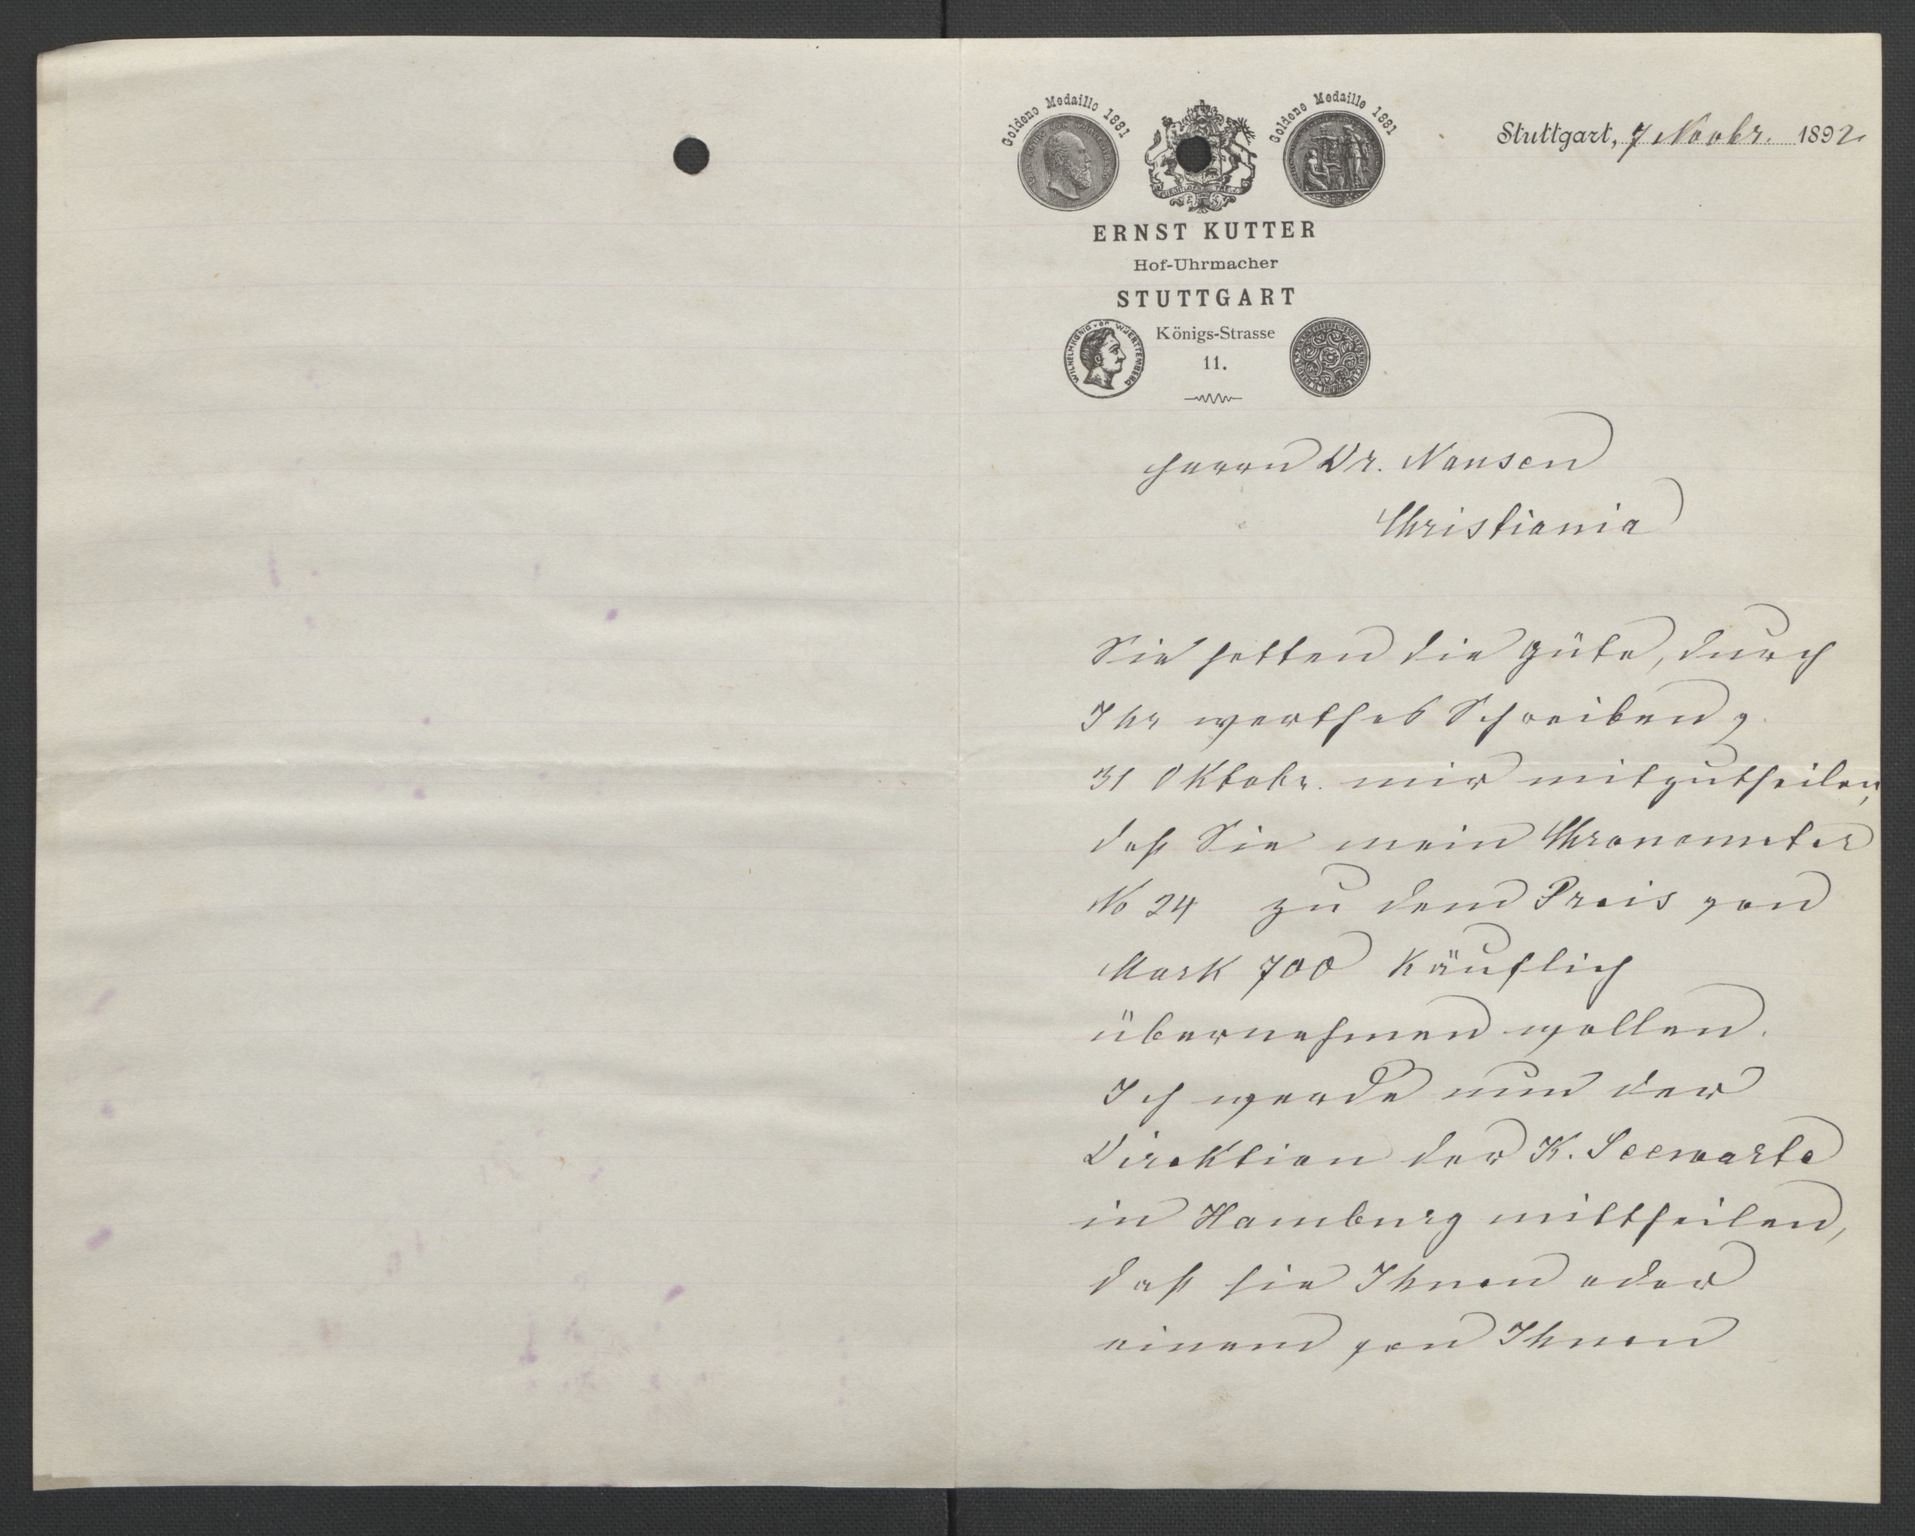 Goldene Medaille 1881
Goldene Medaille 1881
Stuttgart, 7 Novbr. 1892
ERNST KUTTER
Hof-Uhrmacher
STUTTGART
WILHELM KOENIG VON WUERTTEMBERG
Königs-Strasse
11.
Herrn Dr. Nansen
Christiania
Sie hatten die Güte, durch
Ihr werthes Schreiben v.
31 Oktobr. mir mitzutheilen,
daß Sie mein Chronometer
No 24 zu dem Preis von
Mark 700 käuflich
übernehmen wollen.
Ich werde nun der
Direktion der K. Seewarte
in Hamburg mittheilen,
daß sie Ihnen oder
einem von Ihnen